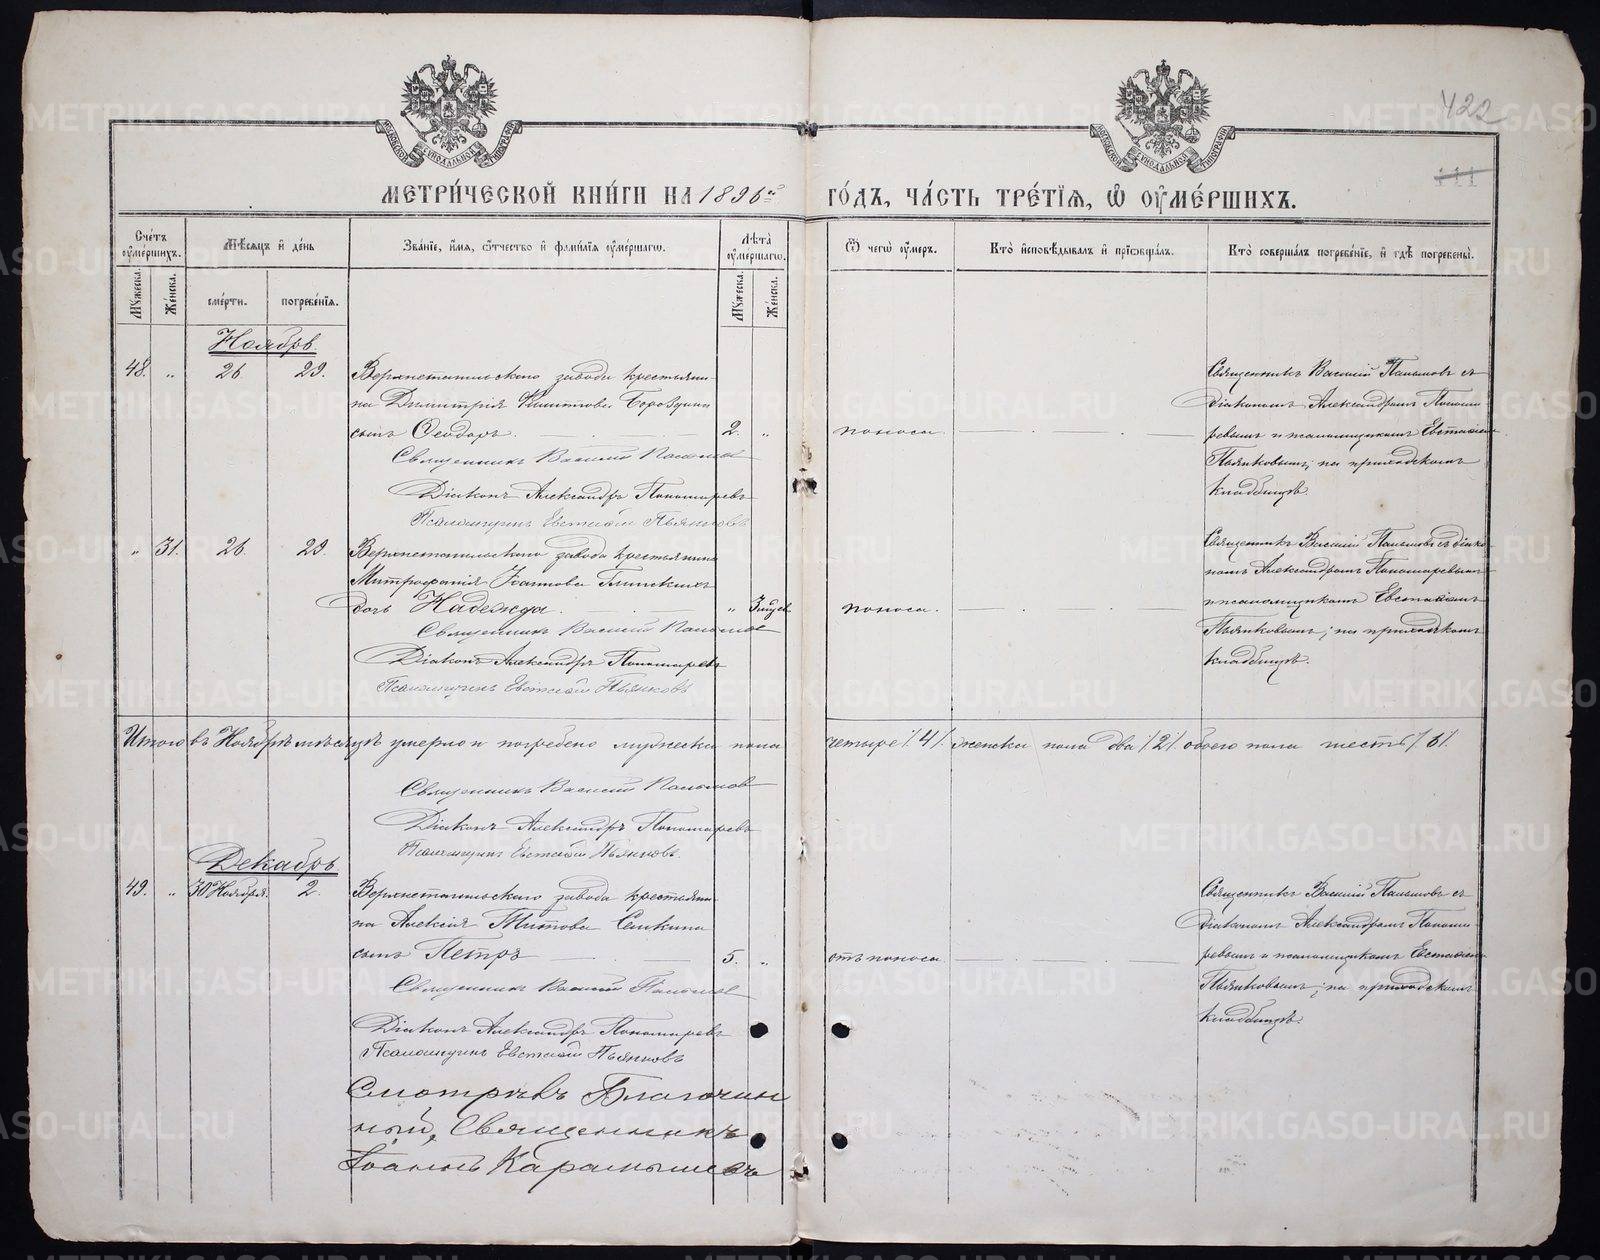 422
111
МОСКОВСКОЙ СѴНОДАЛЬНОЙ ТИПОГРАФІИ
МОСКОВСКОЙ СѴНОДАЛЬНОЙ ТИПОГРАФІИ
МЕТРИ́ЧЕСКОЙ КНИ́ГИ НА 1896ой ГО́ДЪ, ЧА́СТЬ ТРЕ́ТІѦ, Ѿ ОУ҆МЕ́РШИХЪ.
Сче́тъ оу҆ме́ршихъ.
Мꙋ́жеска.
Же́нска.
Мѣ́сѧцъ и҆ де́нь
сме́рти.
погребе́нїѧ.
Зва́нїе, и҆́мѧ, ѻ҆́тчество и҆ фами́лїѧ оу҆ме́ршагѡ.
Лѣ́та оу҆ме́ршагѡ.
Мꙋ́жеска.
Же́нска.
Ѿ чегѡ̀ оу҆́меръ.
Кто̀ и҆сповѣ́дывалъ и҆ прїѡбща́лъ.
Кто̀ соверша́лъ погребе́нїе, и҆ гдѣ̀ погребены̀.
Ноябрь.
48. „ 26 29. Верхнетагильскаго завода крестьяни-
на Димитрія Титова Бороздина
сынъ Ѳеодоръ. 2. „ поноса
Священникъ Василій Пальмов
Діаконъ Александръ Пономаревъ
Псаломщикъ Евстафій Пьянковъ
Священникъ Василій Пальмовъ съ
діакономъ Александромъ Понома
ревымъ и псаломщикомъ Евстафіем
Пьянковымъ; на приходскомъ
кладбищѣ.
„ 31. 26. 29. Верхнетагильскаго завода крестьянина
Митрофанія Іоаннова Глинскихъ
дочь Надежда. „ 3 мѣсяц поноса.
Священникъ Василій Пальмов
Діаконъ Александръ Пономаревъ
Псаломщикъ Евстафій Пьянковъ
Священникъ Василій Пальмовъ съ діако
номъ Александромъ Пономаревымъ
и псаломщикомъ Евстафіемъ
Пьянковымъ; на приходскомъ
кладбищѣ.
Итого въ Ноябрѣ мѣсяцѣ умерло и погребено мужеска пола четыре /4/. женска пола два /2/ обоего пола шесть /6/.
Священникъ Василій Пальмов
Діаконъ Александръ Пономаревъ
Псаломщикъ Евстафій Пьянковъ.
Декабрь
49. „ 30 Ноября. 2. Верхнетагильскаго завода крестьяни-
на Алексія Титова Семкина
сынъ Петръ 5. „ отъ поноса
Священникъ Василій Пальмов
Діаконъ Александръ Пономаревъ
Псаломщикъ Евстафій Пьянковъ
Священникъ Василій Пальмовъ съ
діакономъ Александромъ Понома
ревымъ и псаломщикомъ Евстафіем
Пьянковымъ; на приходскомъ
кладбищѣ.
Смотрѣлъ Благочин
ный, Священникъ
Іоаннъ Карамышевъ
METRIKI.GASO-URAL.RU